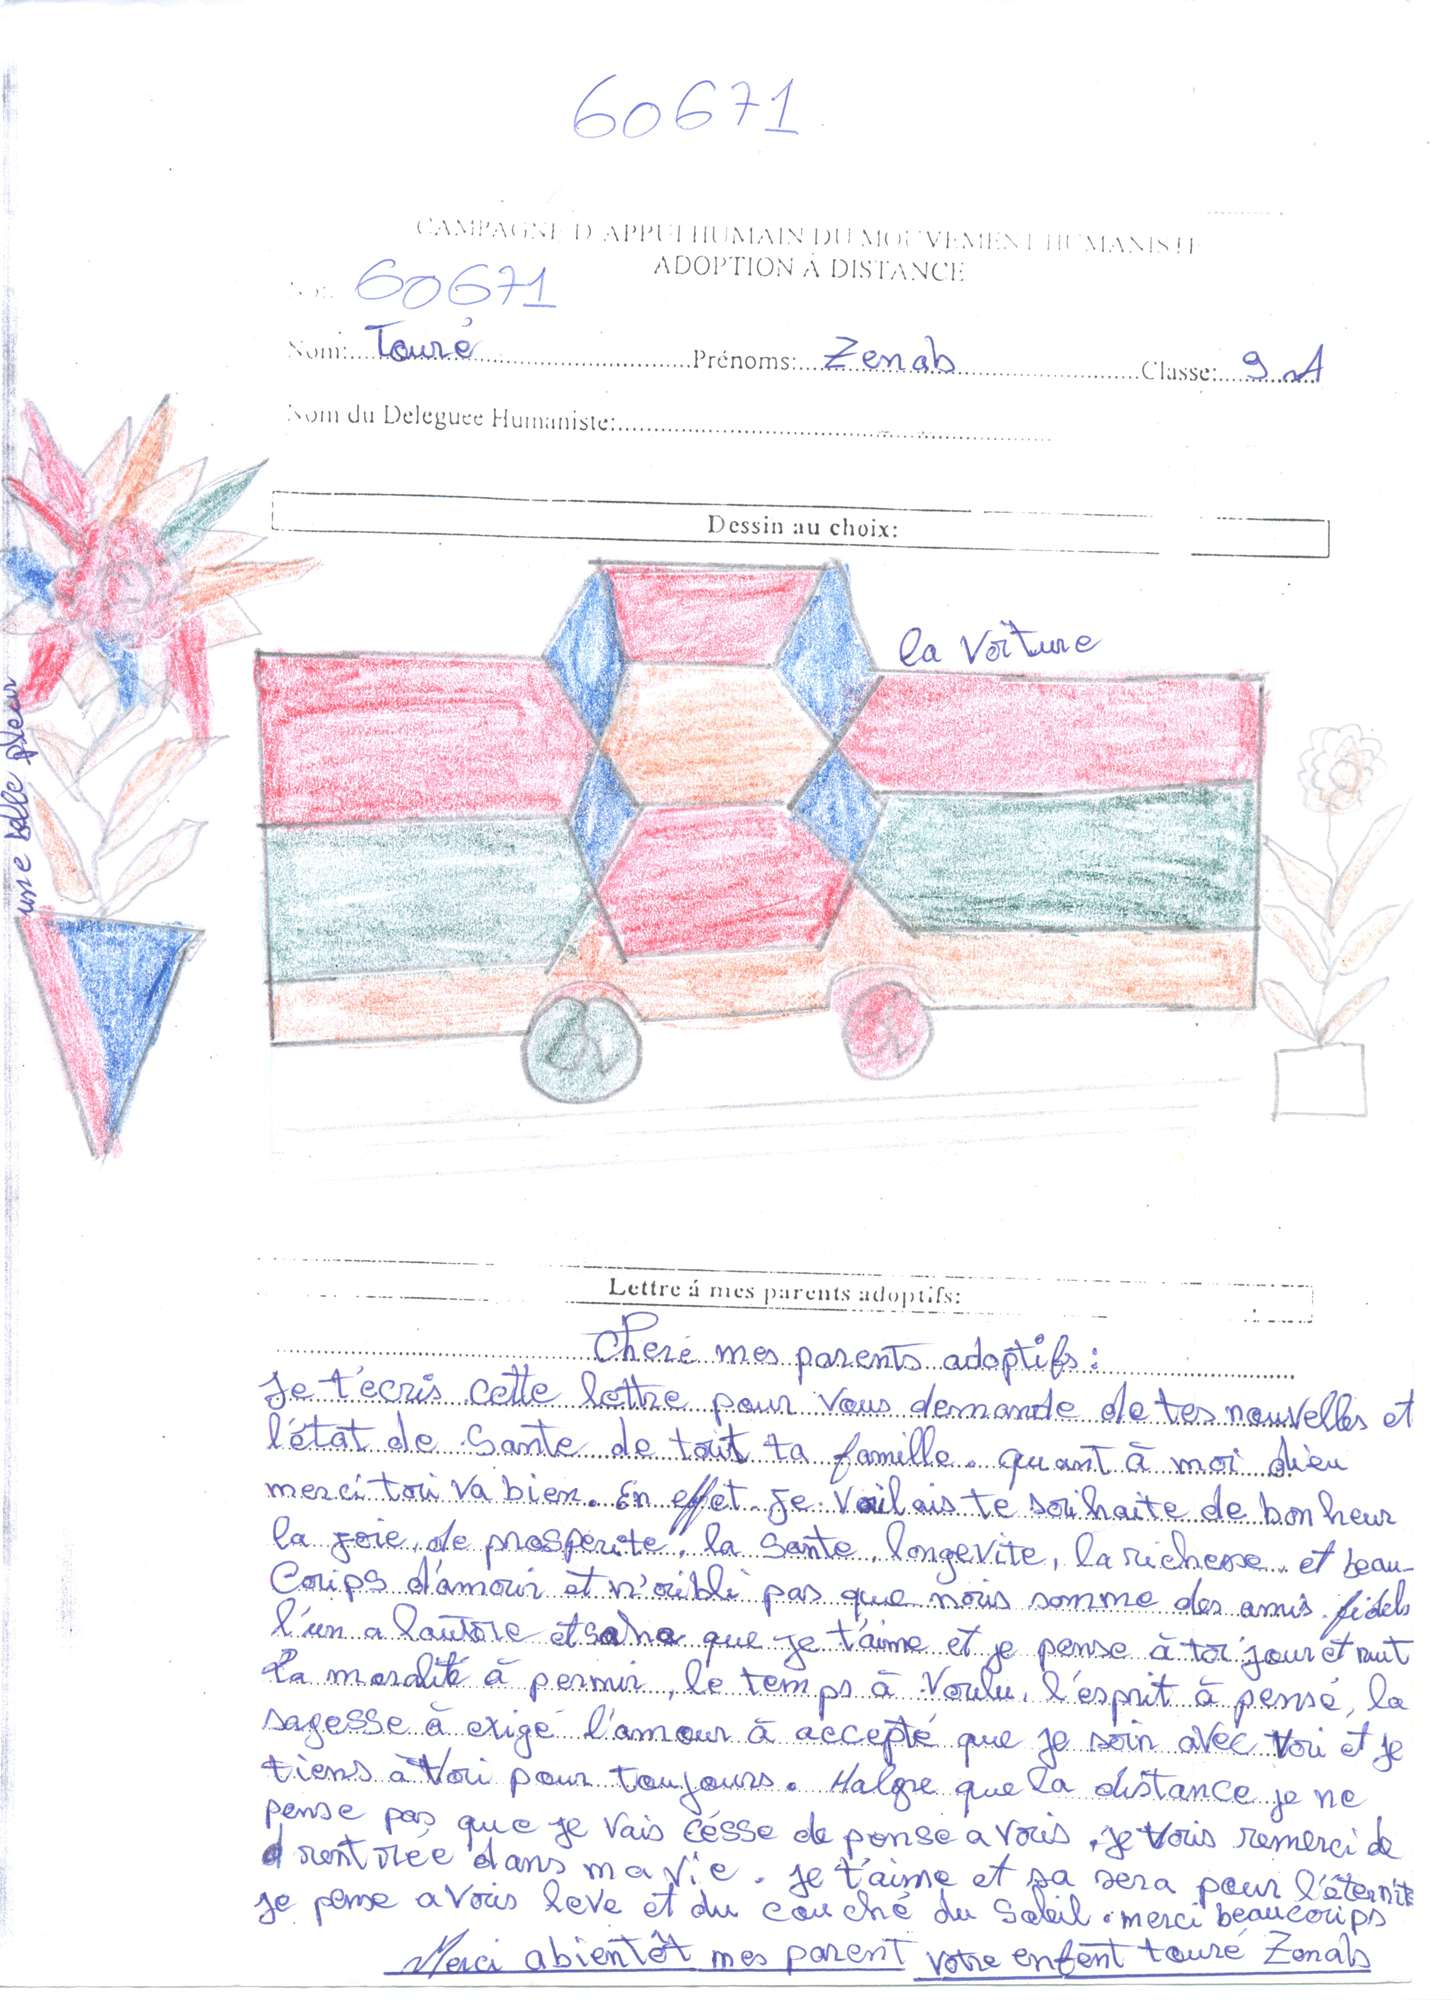 60671
CAMPAGNE D'APPUI HUMAIN DU MOUVEMENT HUMANISTE
ADOPTION À DISTANCE
60671
Nom: Touré Prénoms: Zenab Classe: 9 A
Nom du Deleguee Humaniste:
Dessin au choix:
la voiture
une belle fleur
Lettre á mes parents adoptifs:
Cheré mes parents adoptifs:
Je t'ecris cette lettre pour vous demande de tes nouvelles et
l'état de sante de tout ta famille. quant à moi dieu
merci toui va bien. En effet je voulais te souhaite de bonheur
la joie, de prosperite, la sante, longevite, la richesse et beau-
coups d'amour et n'oubli pas que nous somme des amis fidels
l'un a lautre et que je t'aime et je pense à toi jour et nuit
La moralité à permir, le temps à voulu, l'esprit à pensé, la
sagesse à exigé l'amour à accepté que je soin avec toi et je
tiens à toi pour toujours. Malgre que la distance je ne
pense pas que je vais césse de pense a vous, je vous remerci de
rentrée dans ma vie. je t'aime et sa sera pour l'éternite
je pense a vous leve et du couché du soleil. merci beaucoups
Merci abientôt mes parent votre enfent touré Zenab